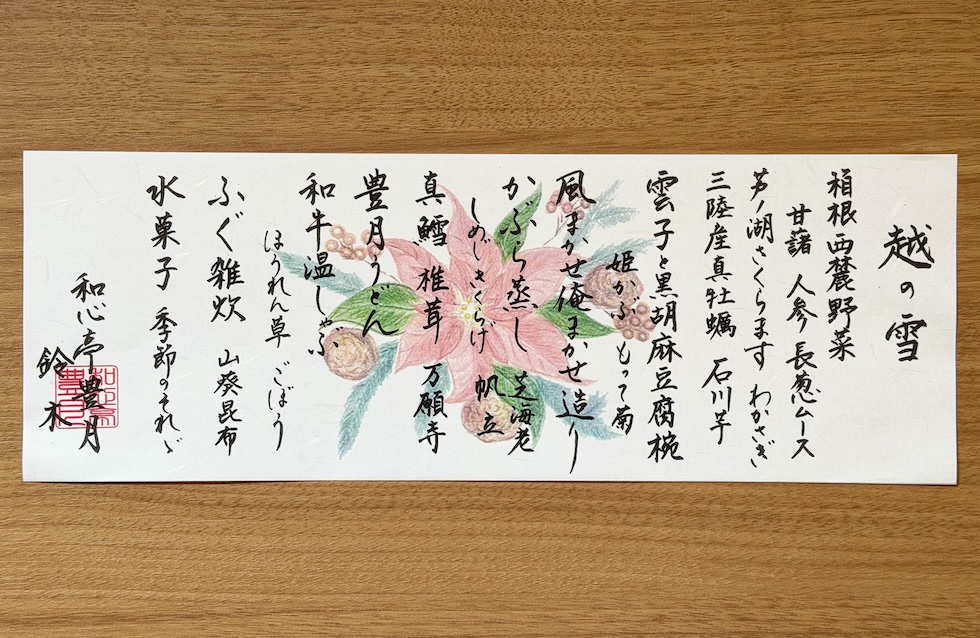 越の雪
箱根西麓野菜
甘藷 人参 長葱ムース
芦ノ湖さくらます わかさぎ
三陸産真牡蠣 石川芋
雲子と黒胡麻豆腐椀
姫かぶ もって菊
風まかせ俺まかせ造り
かぶら蒸し 芝海老
しめじ きくらげ 帆立
真鱈 椎茸 万願寺
豊月うどん
和牛温しゃぶ
ほうれん草 ごぼう
ふぐ雑炊 山葵昆布
水菓子 季節のそれゞ
和心亭豊月
鈴木